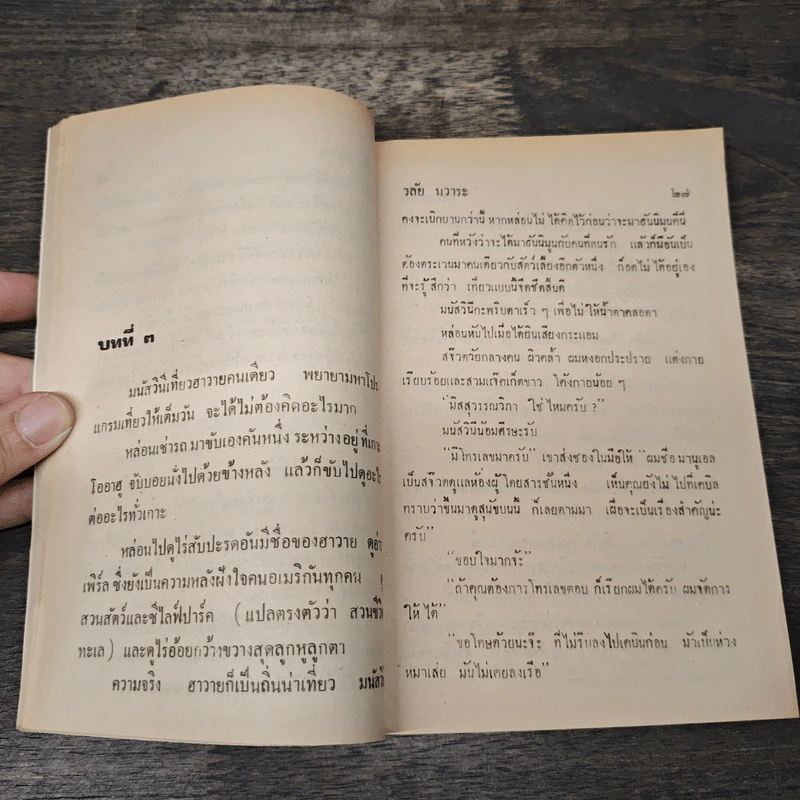 บทที่ ๓
มนัสวินีเที่ยวฮาวายคนเดียว พยายามหาโปร
แกรมเที่ยวให้เต็มวัน จะได้ไม่ต้องคิดอะไรมาก
หล่อนเช่ารถ มาขับเองคันหนึ่ง ระหว่างอยู่ ที่เกาะ
โออาฮู จับบอยนั่งไปด้วยข้างหลัง แล้วก็ขับไปดูอะไร
ต่ออะไรทั่วเกาะ
หล่อนไปดูไร่สับปะรดอันมีชื่อของฮาวาย ดูอ่าว
เพิร์ล ซึ่งยังเป็นความหลังฝังใจคนอเมริกันทุกคน
สวนสัตว์และซีไลฟ์ปาร์ค (แปลตรงตัวว่า สวนชีวิต
ทะเล) และดูไร่อ้อยกว้างขวางสุดลูกหูลูกตา
ความจริง ฮาวายก็เป็นถิ่นน่าเที่ยว มนัสวินี
วลัย นวาระ ๒๗
คงจะเบิกบานกว่านี้ หากหล่อนไม่ ได้คิดไว้ก่อนว่าจะมาฮันนีมูนที่นี่
คนที่หวังว่าจะได้มาฮันนิมูนกับคนที่ตนรัก แล้วก็มีอันเป็น
ต้องตระเวนมาคนเดียวกับสัตว์เลี้ยงอีกตัวหนึ่ง ก็อดไม่ ได้อยู่เอง
ที่จะรู้ สึกว่า เที่ยวแบบนี้จืดชืดสิ้นดี
มนัสวินีกะพริบตาเร็ว ๆ เพื่อไม่ ให้น้ำตาคลอตา
หล่อนหันไปเมื่อได้ยินเสียงกระแอม
สจ๊วตวัยกลางคน ผิวคล้ำ ผมหงอกประปราย แต่งกาย
เรียบร้อยและสวมแจ๊คเก็ตขาว โค้งกายน้อย ๆ
“มิสสุวรรณวิภา ใช่ ไหมครับ ?”
มนัสวินีน้อมศีรษะรับ
“มีโทรเลขมาครับ” เขาส่งซองในมือให้ “ผมชื่อ มานูเอล
เป็นสจ๊วตดูแลห้องผู้ โดยสารชั้นหนึ่ง เห็นคุณยังไม่ ไปที่เคบิล
ทราบว่าขึ้นมาดูสุนัขบนนี้ ก็เลยตามมา เผื่อจะเป็นเรื่องสำคัญน่ะ
ครับ”
“ขอบใจมากจ้ะ”
“ถ้าคุณต้องการ โทรเลขตอบ ก็เรียกผมได้ครับ ผมจัดการ
ให้ ได้”
“ขอโทษด้วยนะจ๊ะ ที่ไม่รีบลงไปเคบินก่อน มัวเป็นห่วง
หมาเสีย มันไม่เคยลงเรือ”